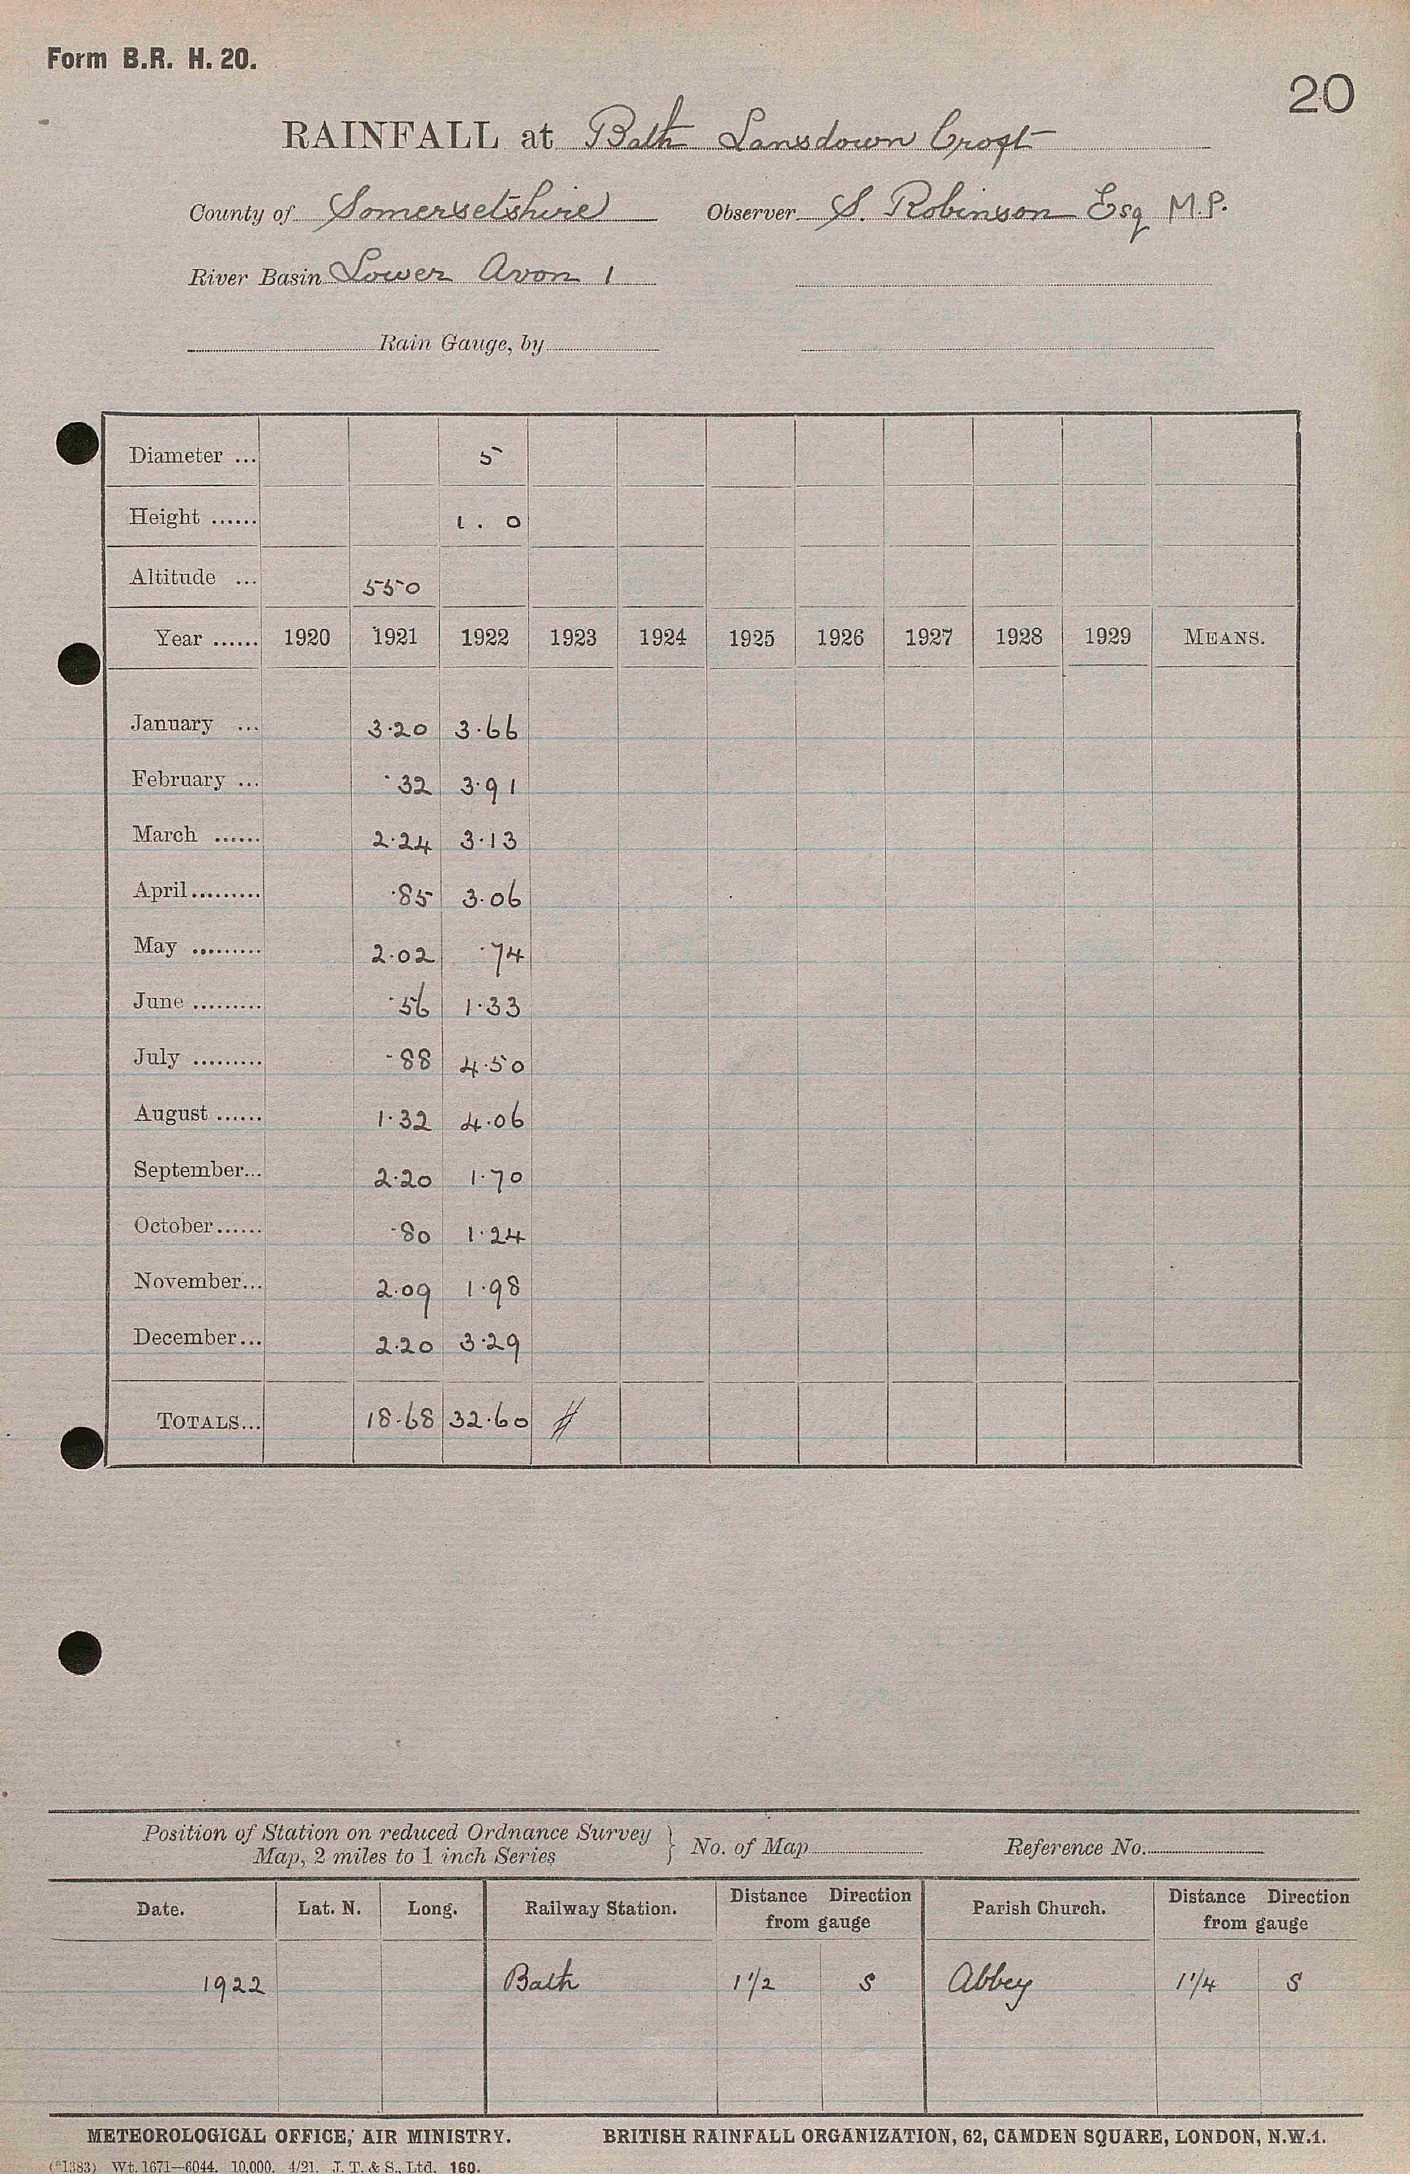 Form B.R. H. 20.
20
RAINFALL at Bath Lansdown Croft
County of Somersetshire Observer S. Robinson Esq M.P.
River Basin Lower Avon 1
Rain Gauge, by
Diameter ... 5
Height ...... 1. 0
Altitude ... 550
Year ...... 1920 1921 1922 1923 1924 1925 1926 1927 1928 1929 MEANS.
January ... 3.20 3.66
February ... .32 3.91
March ...... 2.24 3.13
April......... .85 3.06
May ......... 2.02 .74
June ......... .56 1.33
July ......... .88 4.50
August ...... 1.32 4.06
September... 2.20 1.70
October...... .80 1.24
November... 2.09 1.98
December... 2.20 3.29
TOTALS... 18.68 32.60
Position of Station on reduced Ordnance Survey
Map, 2 miles to 1 inch Series } No. of Map Reference No.
Date. Lat. N. Long. Railway Station. Distance Direction from gauge Parish Church. Distance Direction from gauge
1922 Bath 1 1/2 S Abbey 1 1/4 S
METEOROLOGICAL OFFICE, AIR MINISTRY. BRITISH RAINFALL ORGANIZATION, 62, CAMDEN SQUARE, LONDON, N.W.1.
(*1383) Wt. 1671—6044. 10,000. 4/21. J. T. & S., Ltd. 160.